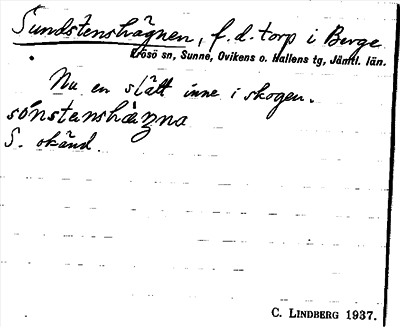 Sundstenshägnen, f.d. torp i Berge
Frösö sn, Sunne, Ovikens o. Hallens tg, Jämtl. län.
Nu en slätt inne i skogen.
sónstenshàŋna
S. okänd.
C. LINDBERG 1937.